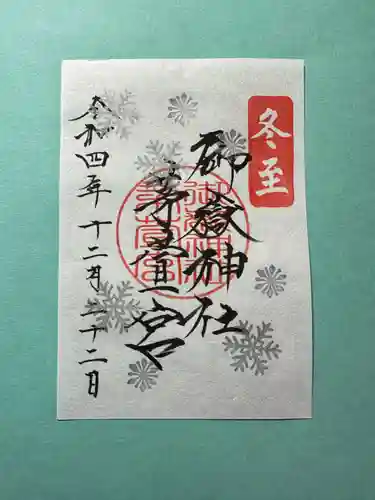 冬至
御嶽神社
茅萱宮
令和四年十二月二十二日